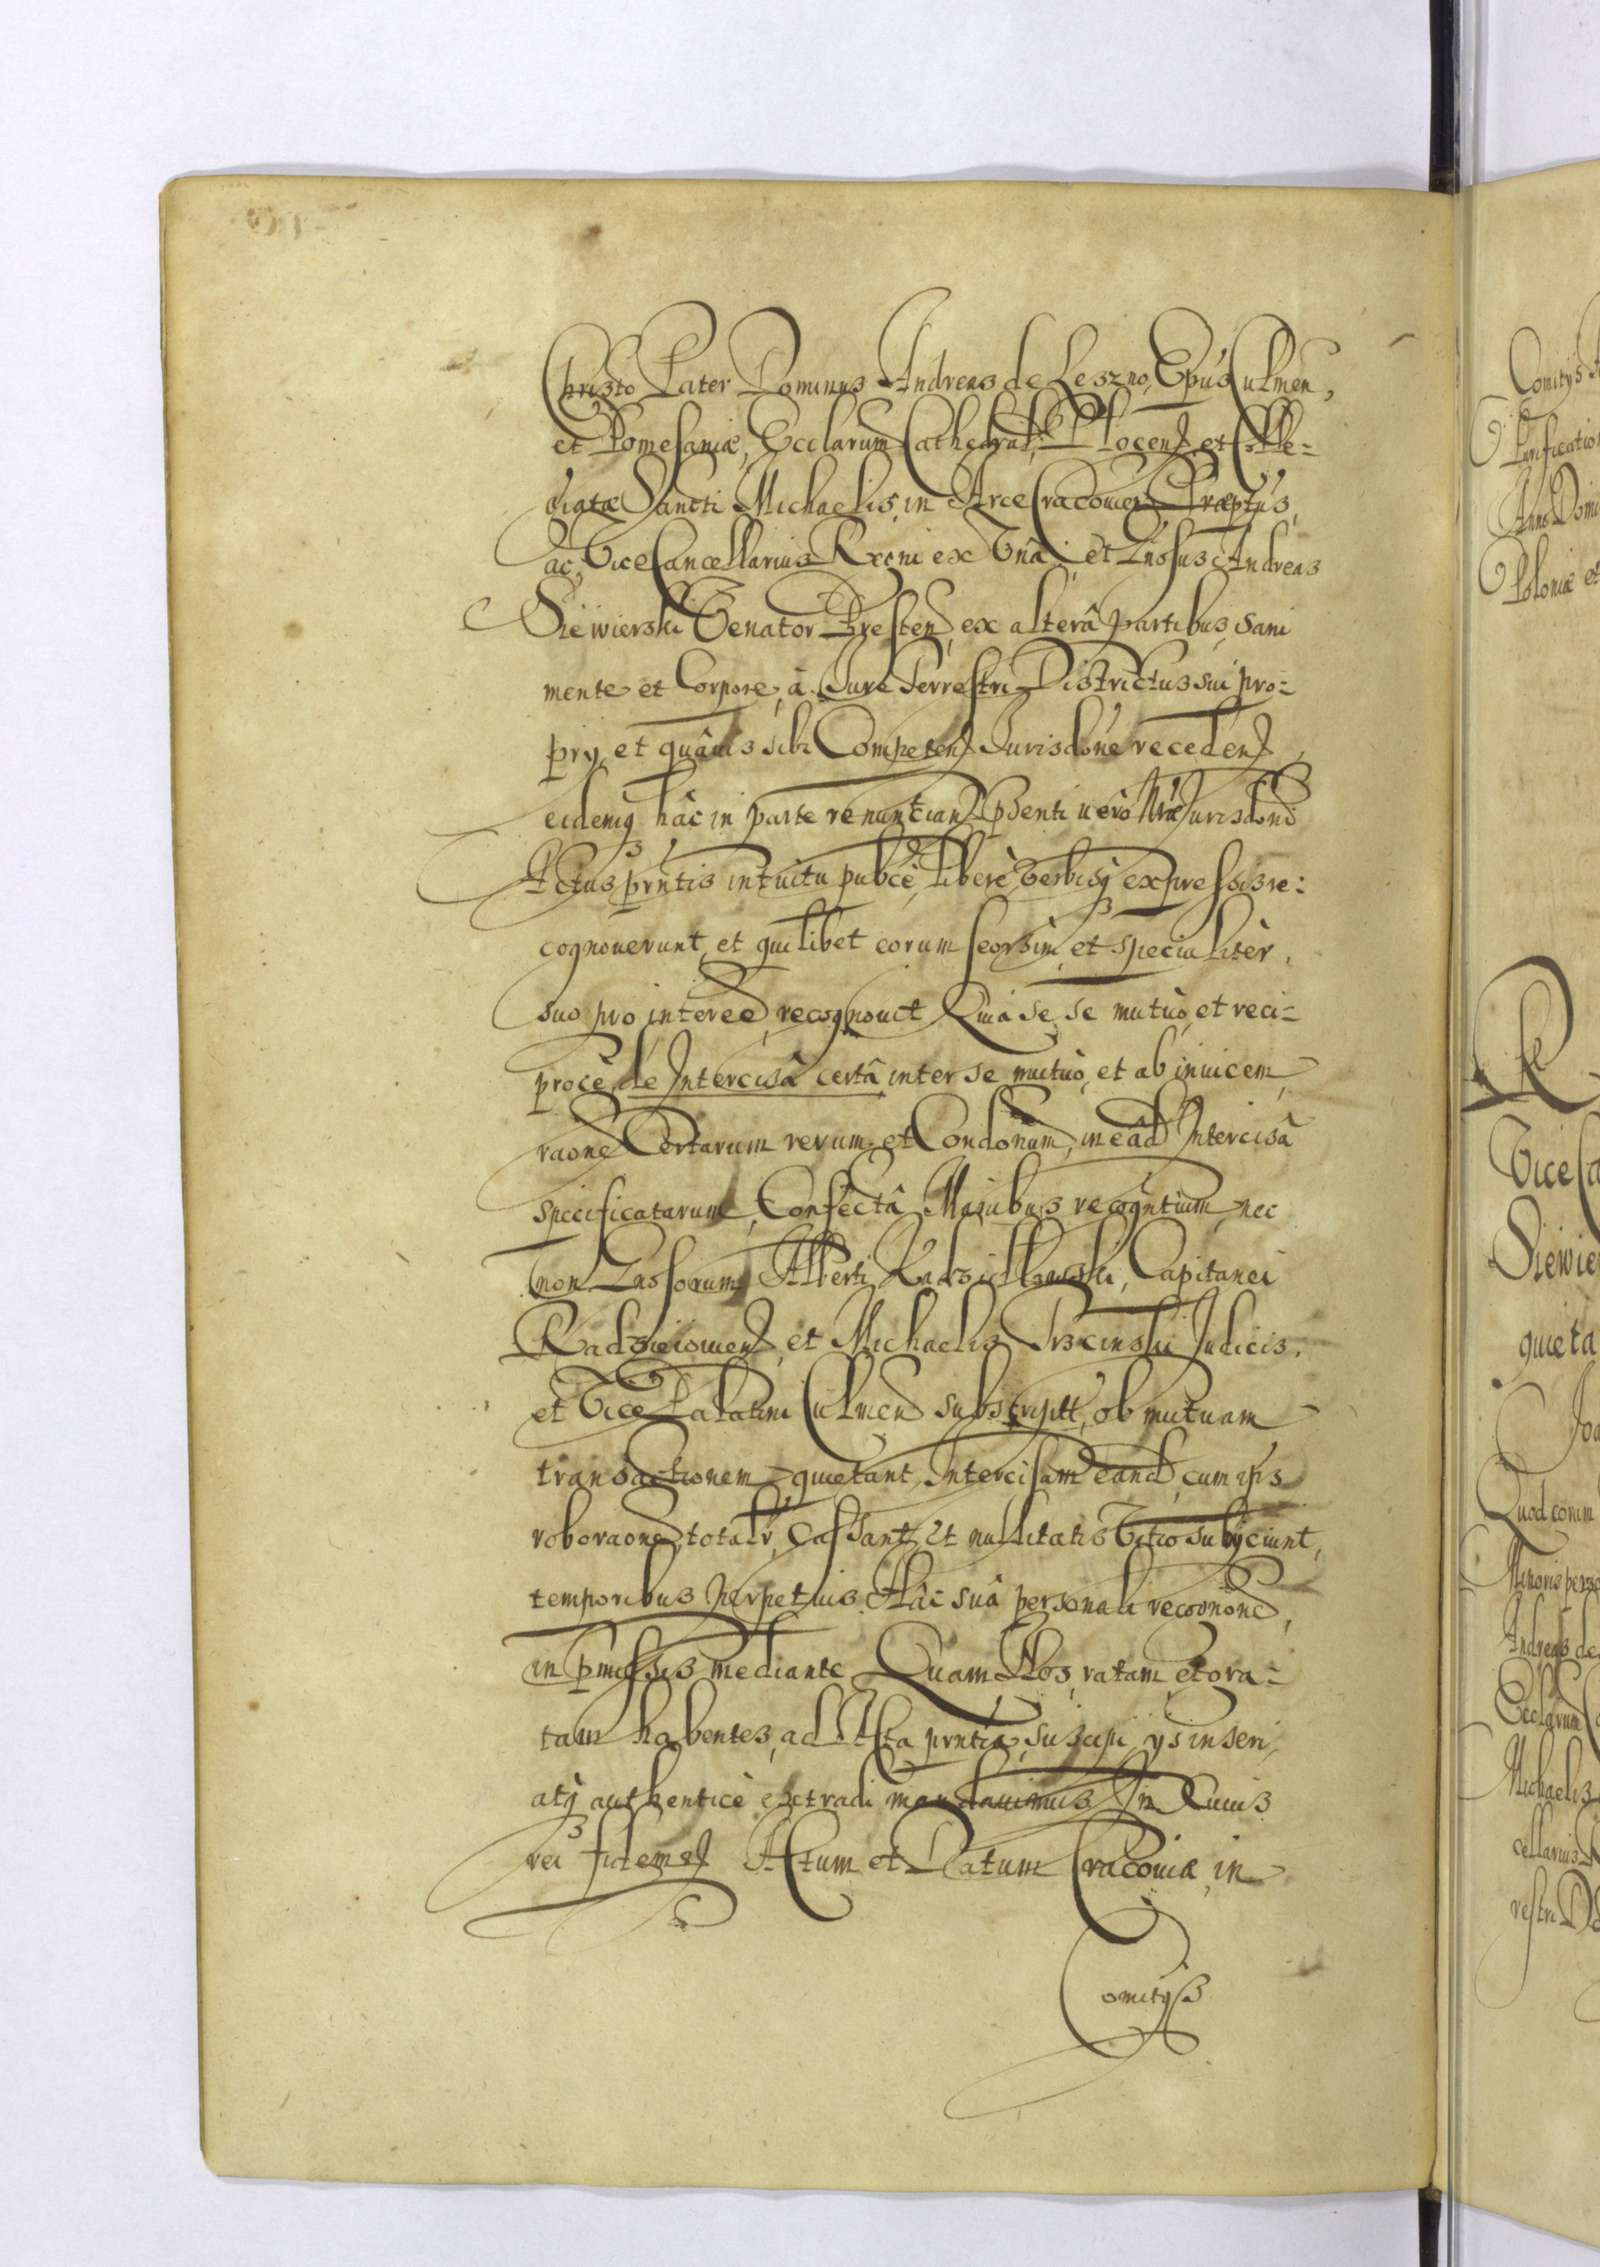 Christo Pater Dominus Andreas de Leszno, Epus Culmen,
et Pomesaniæ, Ecclarum Cathedral: Plocen et Colle=
giatæ Sancti Michaelis, in Arce Cracovien Præptus,
ac Vice Cancellarius Regni ex Unâ, et Gnosus Andreas
Siewierski Venator Bresten, ex alterâ partibus, sani
mente et Corpore, à Jure Terrestri Districtus sui pro=
prij, et quâvis sibi Competen Jurisdōne receden,
eidemq hâc in parte renuntian, psenti verò Nræ Jurisdōni
Actus prntis intuitu pubcè, liberè Verbisq expressis re:
cognoverunt, et quilibet eorum seorsim, et specialitèr,
suo pro interee, recognovit Quia se se mutuò, et reci=
procè, de Intercisâ certâ inter se mutuò, et ab invicem,
raone Certarum rerum et Condonum, in eâd Intercisâ
specificatarum, Confectâ Manibus recogntium, nec
non Gnosorum Alberti Radziellowski, Capitanei
Radzieiowen, et Michaelis Trzcinski Judicis,
et Vice Palatini Culmen subscriptt, ob mutuam
transactionem, quietant, Intercisam eand, cum ipis
roboraone, totalr, Cassant, et nullitatis Vitio subijciunt,
temporibus perpetuis. Hâc suâ personali recognone,
in pmissis mediante Quam Nos, ratam, et gra=
tam habentes, ad Acta prntia, suscipi, ijs inseri,
atq authenticè extradi mandavimus In Cuius
rei fidem Actum et Datum Cracoviæ, in
Comitijs
Comitijs
Purificatio
Anno Domi
Poloniæ et
R
Vice Ca
Siewie
quieta
Joa
Quod coram
Minoris
Andreas de
Ecclarum
Michaelis
cellarius
restri D